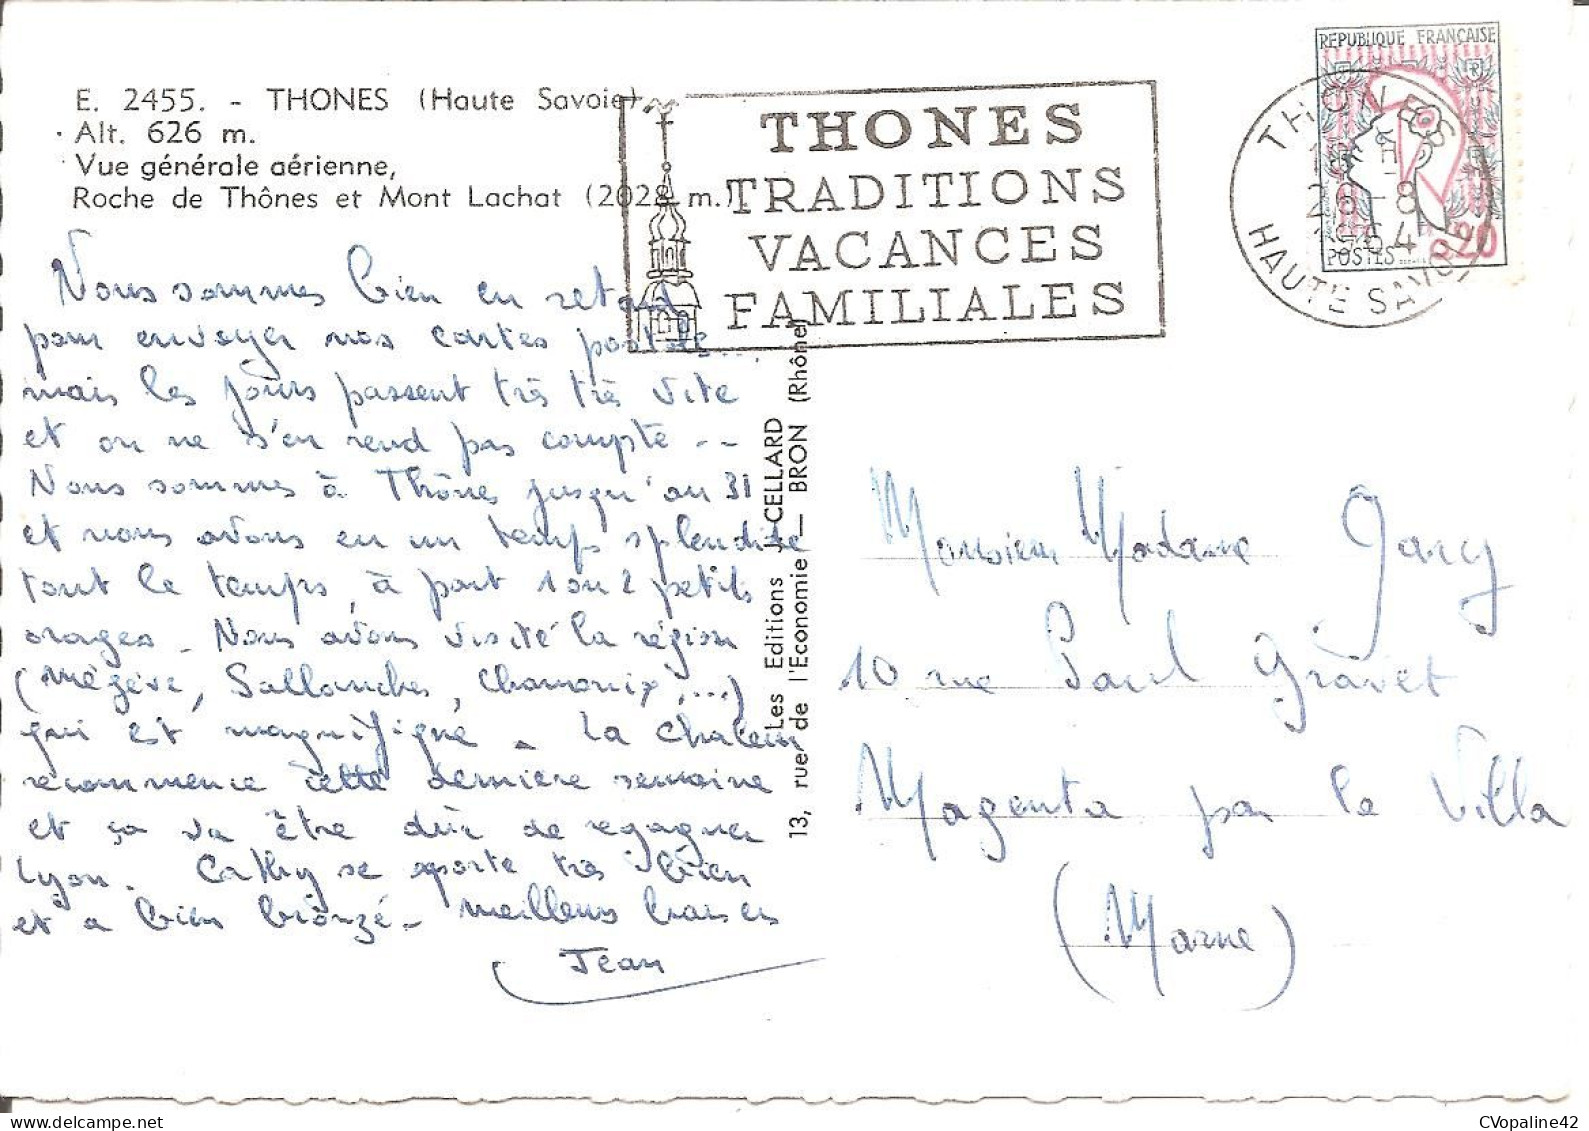 E. 2455. - THONES (Haute Savoie)
Alt. 626 m.
Vue générale aérienne,
Roche de Thônes et Mont Lachat (2028 m.)
THONES
TRADITIONS
VACANCES
FAMILIALES
REPUBLIQUE FRANÇAISE
POSTES
0,20
THONES
18 H
26 -8
1964
HAUTE SAVOIE
Nous sommes bien en retard
pour envoyer nos cartes postales...
mais les jours passent très très vite
et on ne s'en rend pas compte --
Nous sommes à Thônes jusqu'au 31
et nous avons eu un temps splendide
tout le temps, à part 1 ou 2 petits
orages. Nous avons visité la région
(Mégève, Sallanches, Chamonix,...)
qui est magnifique. La chaleur
recommence cette dernière semaine
et ça va être dur de regagner
Lyon. Cathy se porte très bien
et a bien bronzé. Meilleurs baisers
Jean
Les Editions J. CELLARD
13, rue de l'Economie — BRON (Rhône)
Monsieur Madame Garcy
10 rue Paul Gràvet
Magenta par la Villa
(Marne)
CVopaline42